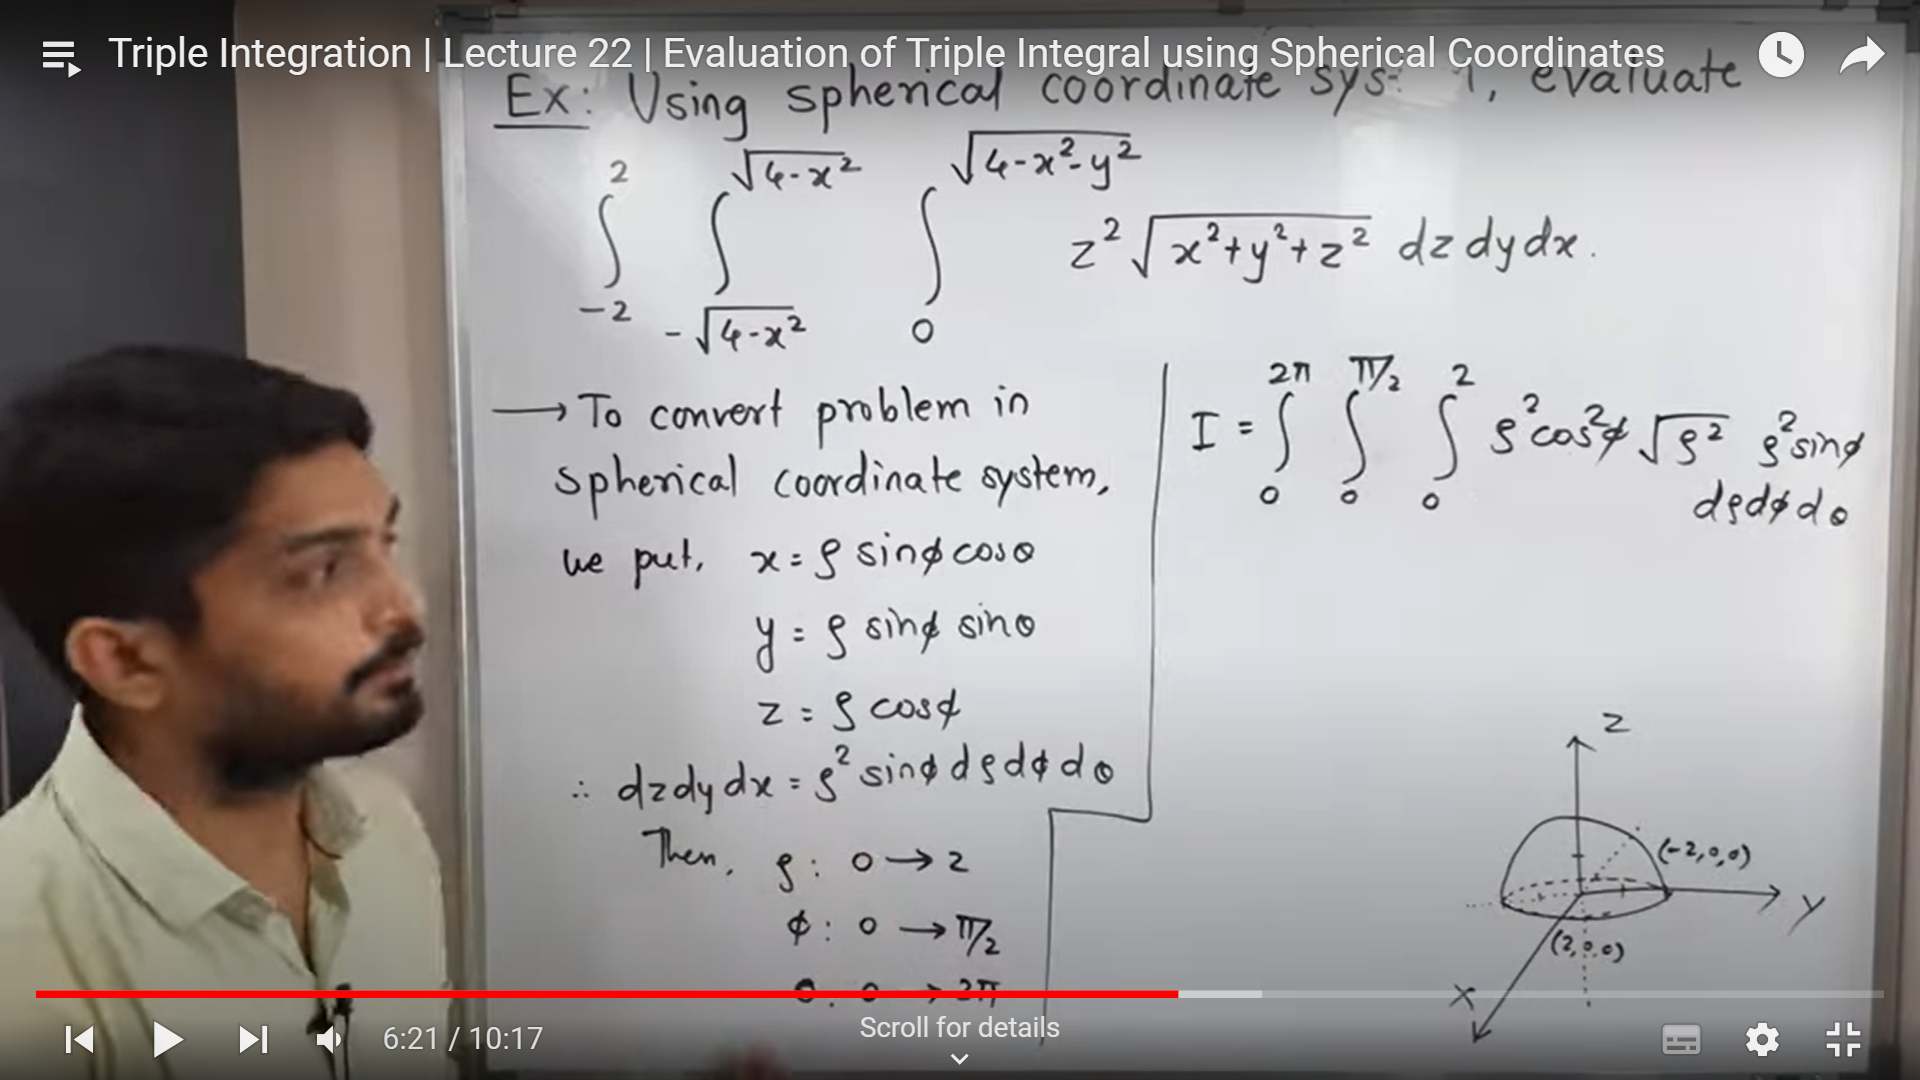 Triple Integration | Lecture 22 | Evaluation of Triple Integral using Spherical Coordinates
Ex: Using spherical coordinate sys , evaluate
∫_{-2}^{2} ∫_{-√(4-x²)}^{√(4-x²)} ∫_{0}^{√(4-x²-y²)} z²√(x²+y²+z²) dz dy dx.
→ To convert problem in
spherical coordinate system,
we put, x = ρ sinϕ cosθ
y = ρ sinϕ sinθ
z = ρ cosϕ
∴ dz dy dx = ρ² sinϕ dρ dϕ dθ
Then, ρ : 0 → 2
ϕ : 0 → π/2
θ : 0 → 2π
I = ∫_{0}^{2π} ∫_{0}^{π/2} ∫_{0}^{2} ρ² cos²ϕ √ρ² ρ² sinϕ
dρ dϕ dθ
Z
(-2,0,0)
Y
(2,0,0)
X
6:21 / 10:17
Scroll for details